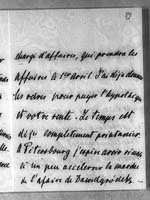 89
chargé d'affaires, qui prendra les
affaires le 1er avril. J'ai déjà donné
les ordres pour purger l'hypothèque
et votre rente. Le temps est
déjà complètement printanier.
A Pétersbourg j'espère avoir réussi
à un peu accélérer la marche
de l'affaire de